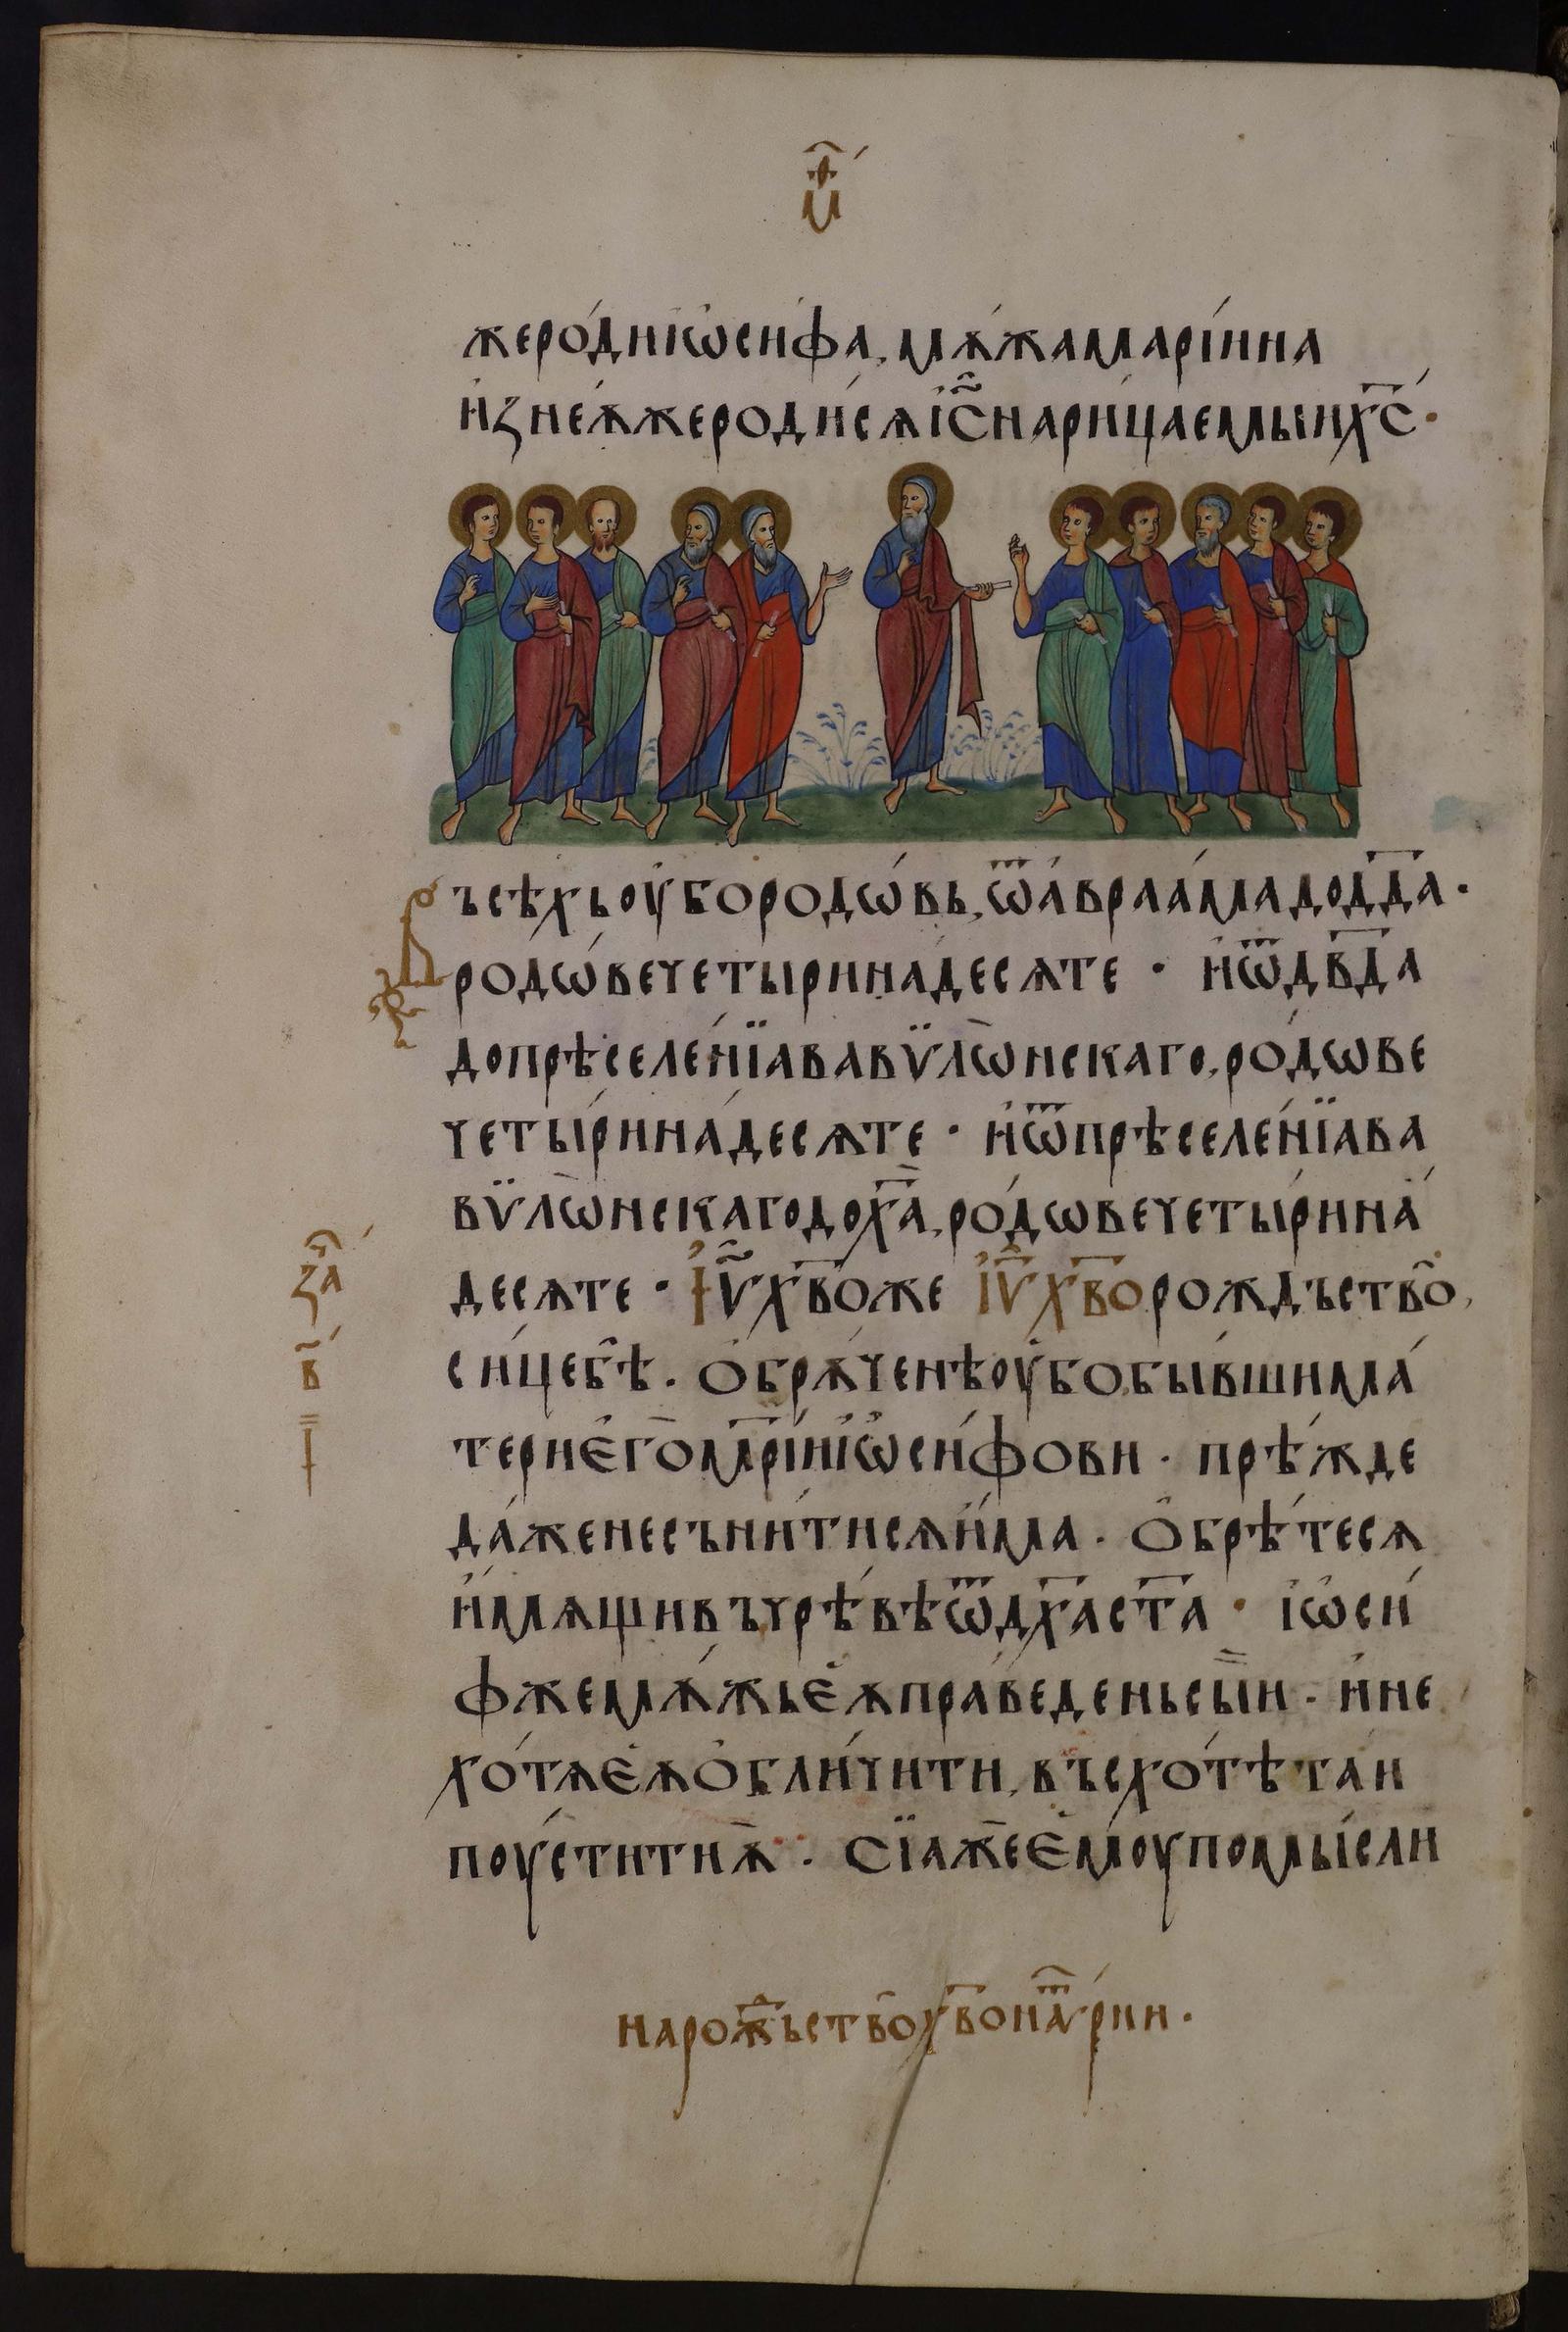 жеро́дниїѡ҆сифа, мѫ́жамарі́ина
и҆знеѧ́жероди́сѧі҆с҃нари́цаемыих҃с·
Въсѣхьоу҆бородѡ́вь, ѿа҆враа́мадодд҃а·
родѡ́вечетыринадесѧте · и҆ѿдв҃да
допрѣселе́нїававѷлѡ̀нскаго, ро́дѡве
четы́рина́десѧте · и҆ѿпрѣселе́нїава
вѷлѡ̀нскагодох҃а, ро́дѡвечеты́рина́
десѧте · І҆ѵ҃х҃воже І҆ѵ҃х҃ворождъство,
си́цебѣ. О҆брѫ́ченѣоу҆бобы́вшима́
терие҆гом҃рі́иїѡ҆си́фови. прѣ́жде
да́женесъни́тисѧи҆́ма. О҆брѣ́тесѧ
и҆мѫщивъчрѣ́вѣѿдх҃аст҃а · їѡ҆си́
фжемѫ́жьеѫ҆пра́веденьсы́и. и҆не
хо́тѧеѫ҆о҆бли́чити, въсхо́тѣтаи
поу́ститиѫ. Сїажеє҆моупомы́сли
за҃
в҃
нарож҃ьствох҃вона҃рии·